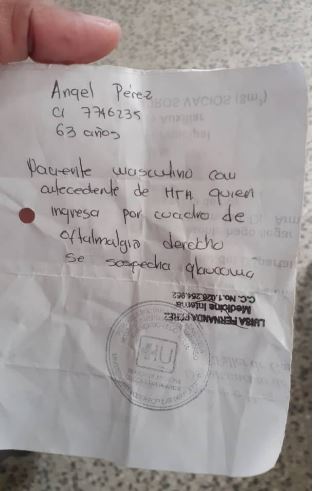 Angel Pérez
CI 7746235
63 años
Paciente masculino con
antecedente de HTA quien
ingresa por cuadro de
oftalmalgia derecho
se sospecha glaucoma
LUISA FERNANDA PÉREZ
Medicina Interna
C.C. No. 1.026.254.962